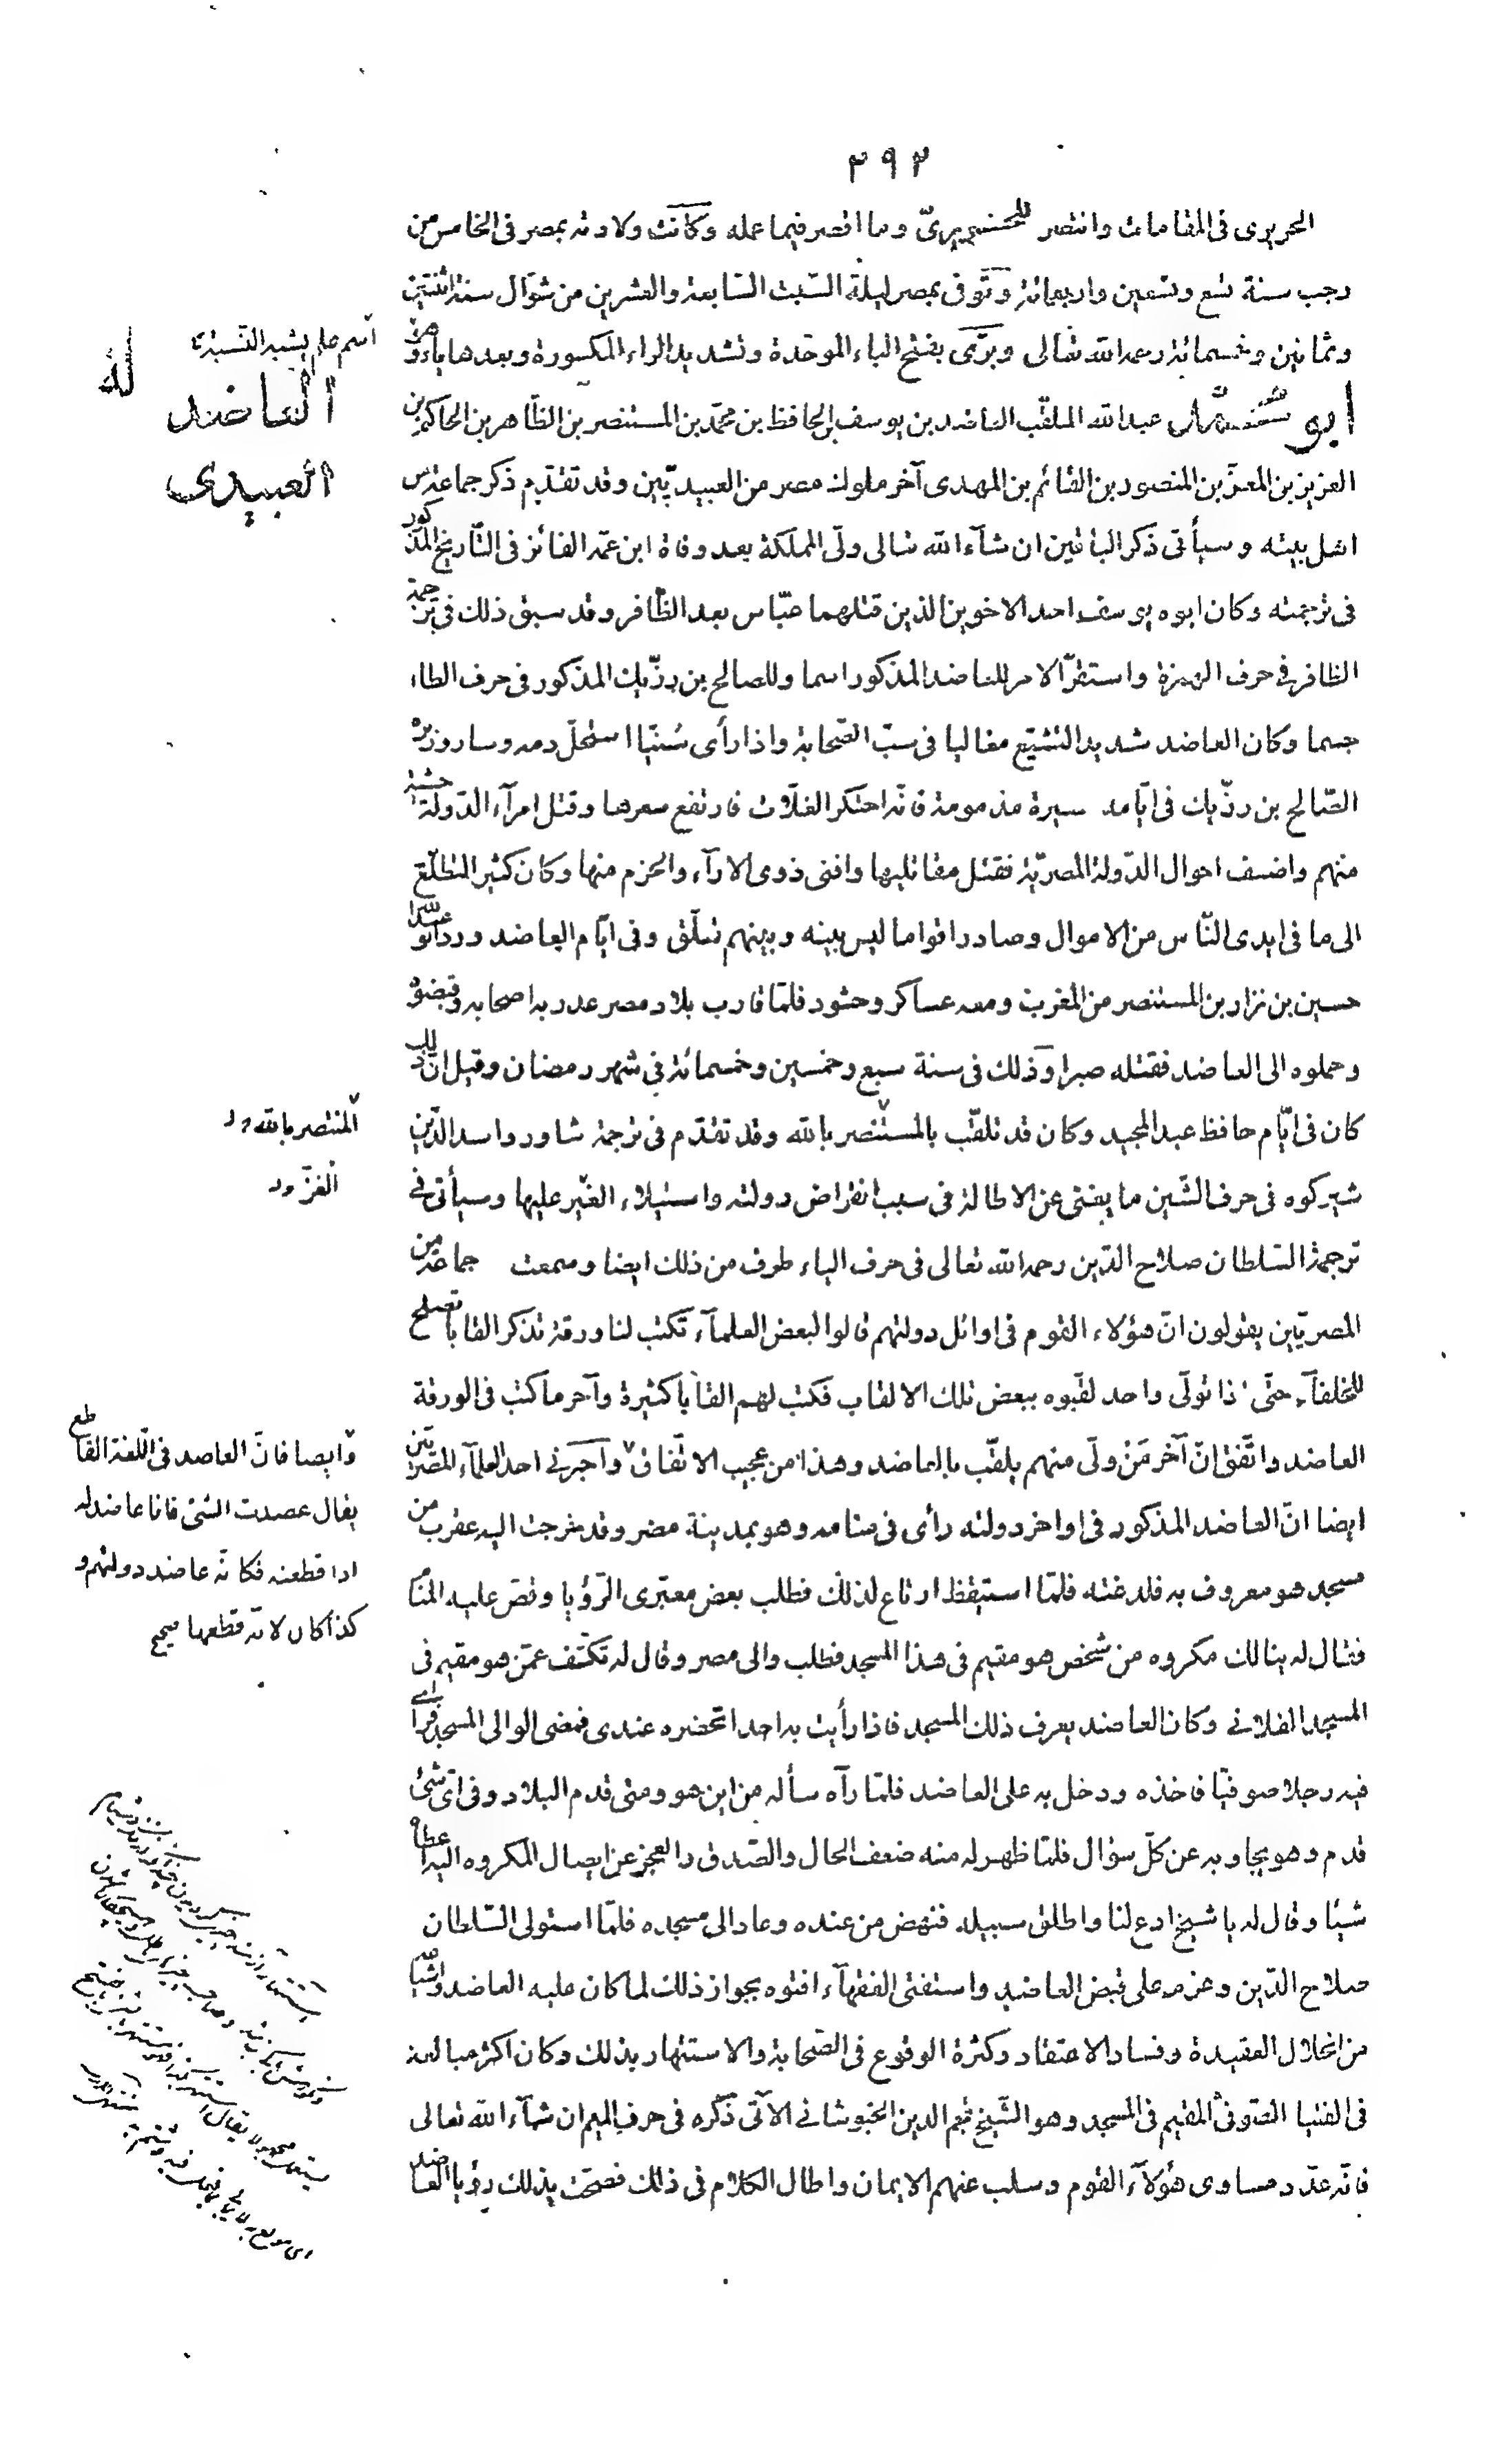 ٣٩٢
الحريرى فى المقامات وانتصر للحريرىّ وما اقصر فيما عمله وكانت ولادته بمصر فى الخامس من
رجب سنة تسع وتسعين واربعمائة وتوفى بمصر ليلة السّبت السّابعة والعشرين من شوّال سنة اثنتين
وثمانين وخمسمائة رحمه الله تعالى وبرّى بفتح الباء الموحّدة وتشديد الراء المكسورة وبعدها ياء وهو
اسم علم يشبه النّسبة
ابو محمّد عبد الله الملقّب العاضد بن يوسف بن الحافظ بن محمّد بن المستنصر بن الظّاهر بن الحاكم بن
العاضد
العبيدى
العزيز بن المعزّ بن المنصور بن القائم بن المهدى آخر ملوك مصر من العبيديّين وقد تقدّم ذكر جماعة من
اهل بيته وسيأتى ذكر الباقين ان شآء الله تعالى ولّى المملكة بعد وفاة ابن عمّه الفائز فى التّاريخ المذكور
فى ترجمته وكان ابوه يوسف احد الاخوين الذين قتلهما عبّاس بعد الظّافر وقد سبق ذلك فى ترجمة
الظافر فى حرف الهمزة واستقرّ الامر للعاضد المذكور اسما وللصالح بن رزّيك المذكور فى حرف الطاء
جسما وكان العاضد شديد التشيّع مغاليا فى سبّ الصّحابة واذا رأى سُنّيّا استحلّ دمه وسار وزيره
الصّالح بن رزّيك فى ايّامه سيرة مذمومة فانّه احتكر الغلّات فارتفع سعرها وقتل امرآء الدّولة خشية
منهم واضعف احوال الدّولة المصريّة فقتل مقاتليها وافنى ذوى الارآء والحزم منها وكان كثير التطلّع
الى ما فى ايدى النّاس من الاموال وصادر اقواما ليس بينه وبينهم تعلّق وفى ايّام العاضد ورد ابو عبد الله
حسين بن نزار بن المستنصر من المغرب ومعه عساكر وحشود فلمّا قارب بلاد مصر غدر به اصحابه وقبضوه
وحملوه الى العاضد فقتله صبرا وذلك فى سنة سبع وخمسين وخمسمائة فى شهر رمضان وقيل انّ ذلك
كان فى ايّام حافظ عبد المجيد وكان قد تلقّب بالمستنصر بالله وقد تقدّم فى ترجمة شاور واسد الدّين
المنتصر بالله
شيركوه فى حرف الشّين ما يغنى عن الاطالة فى سبب انقراض دولته واستيلاء الغير عليها وسيأتى فى
الغزّ
ترجمة السّلطان صلاح الدّين رحمه الله تعالى فى حرف الياء طرف من ذلك ايضا وسمعت جماعة من
المصريّين يقولون انّ هؤلاء القوم فى اوائل دولتهم قالوا لبعض العلمآء تكتب لنا ورقة تذكر القابا تصلح
للخلفآء حتّى اذا تولّى واحد لقّبوه ببعض تلك الالقاب فكتب لهم القابا كثيرة وآخر ما كتب فى الورقة
العاضد واتّفق انّ آخر مَنْ ولّى منهم يلقّب بالعاضد وهذا من عجيب الاتّفاق واخبرنى احد العلمآء المصريّين
وايضا فانّ العاضد فى اللّغة القاطع
يقال عضدت الشئ فانا عاضد له
اذا قطعته فكانّه عاضد دولتهم و
كذا كان لانّه قطعها صحيح
ايضا انّ العاضد المذكور فى اواخر دولته رأى فى منامه وهو بمدينة مصر وقد خرجت اليه عقرب من
مسجد هو معروف به فلدغته فلمّا استيقظ ارتاع لذلك فطلب بعض معبّرى الرّؤيا وقصّ عليه المنام
فقال له ينالك مكروه من شخص هو مقيم فى هذا المسجد فطلب والى مصر وقال له تكشف عمّن هو مقيم فى
المسجد الفلانى وكان العاضد يعرف ذلك المسجد فاذا رأيت به احدا تحضره عندى فمضى الوالى المسجد فرأى
فيه رجلا صوفيّا فاخذه ودخل به على العاضد فلمّا رآه سأله من اين هو ومتى قدم البلاد وفى اىّ شئ
قدم وهو يجاوبه عن كلّ سؤال فلمّا ظهر له منه ضعف الحال والصّدق والعجز عن ايصال المكروه اليه اعطاه
شيئا وقال له يا شيخ ادع لنا واطلق سبيله فنهض من عنده وعاد الى مسجده فلمّا استولى السّلطان
صلاح الدّين وعزم على قبض العاضد واستفتى الفقهآء افتوه بجواز ذلك لما كان عليه العاضد واشياعه
من انحلال العقيدة وفساد الاعتقاد وكثرة الوقوع فى الصّحابة والاستهتار بذلك وكان اكثرهم مبالغة
فى الفتيا الصّوفى المقيم فى المسجد وهو الشّيخ نجم الدين الخبوشانى الآتى ذكره فى حرف الميم ان شآء الله تعالى
فانّه عدّد مساوى هؤلآء القوم وسلب عنهم الايمان واطال الكلام فى ذلك فصحّت بذلك رؤيا العاضد